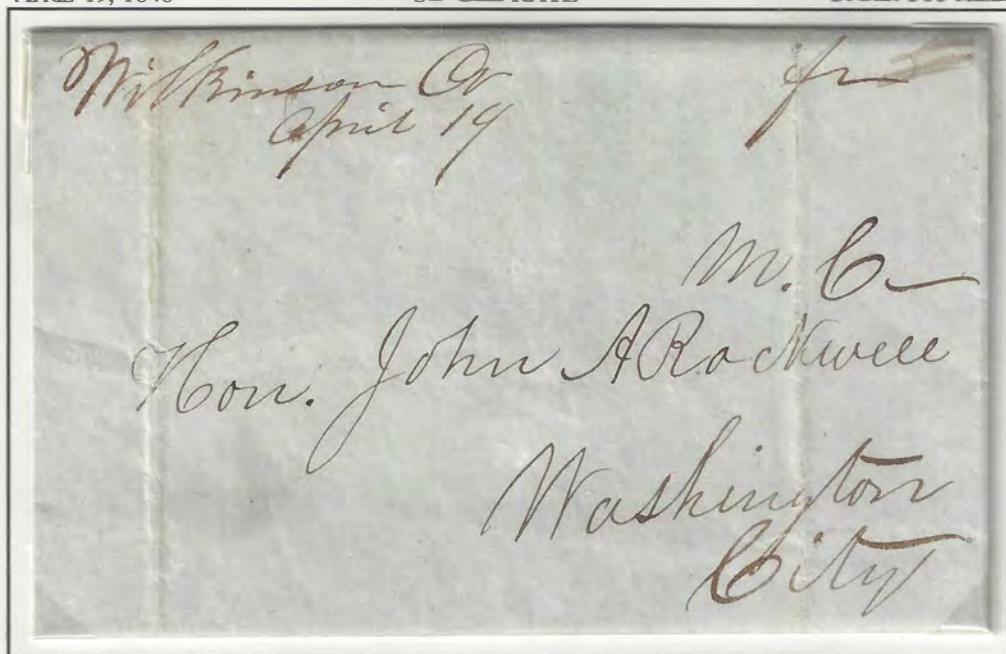 Wilkinson Cr
April 19
fr
M. C—
Hon. John A Rockwell
Washington
City